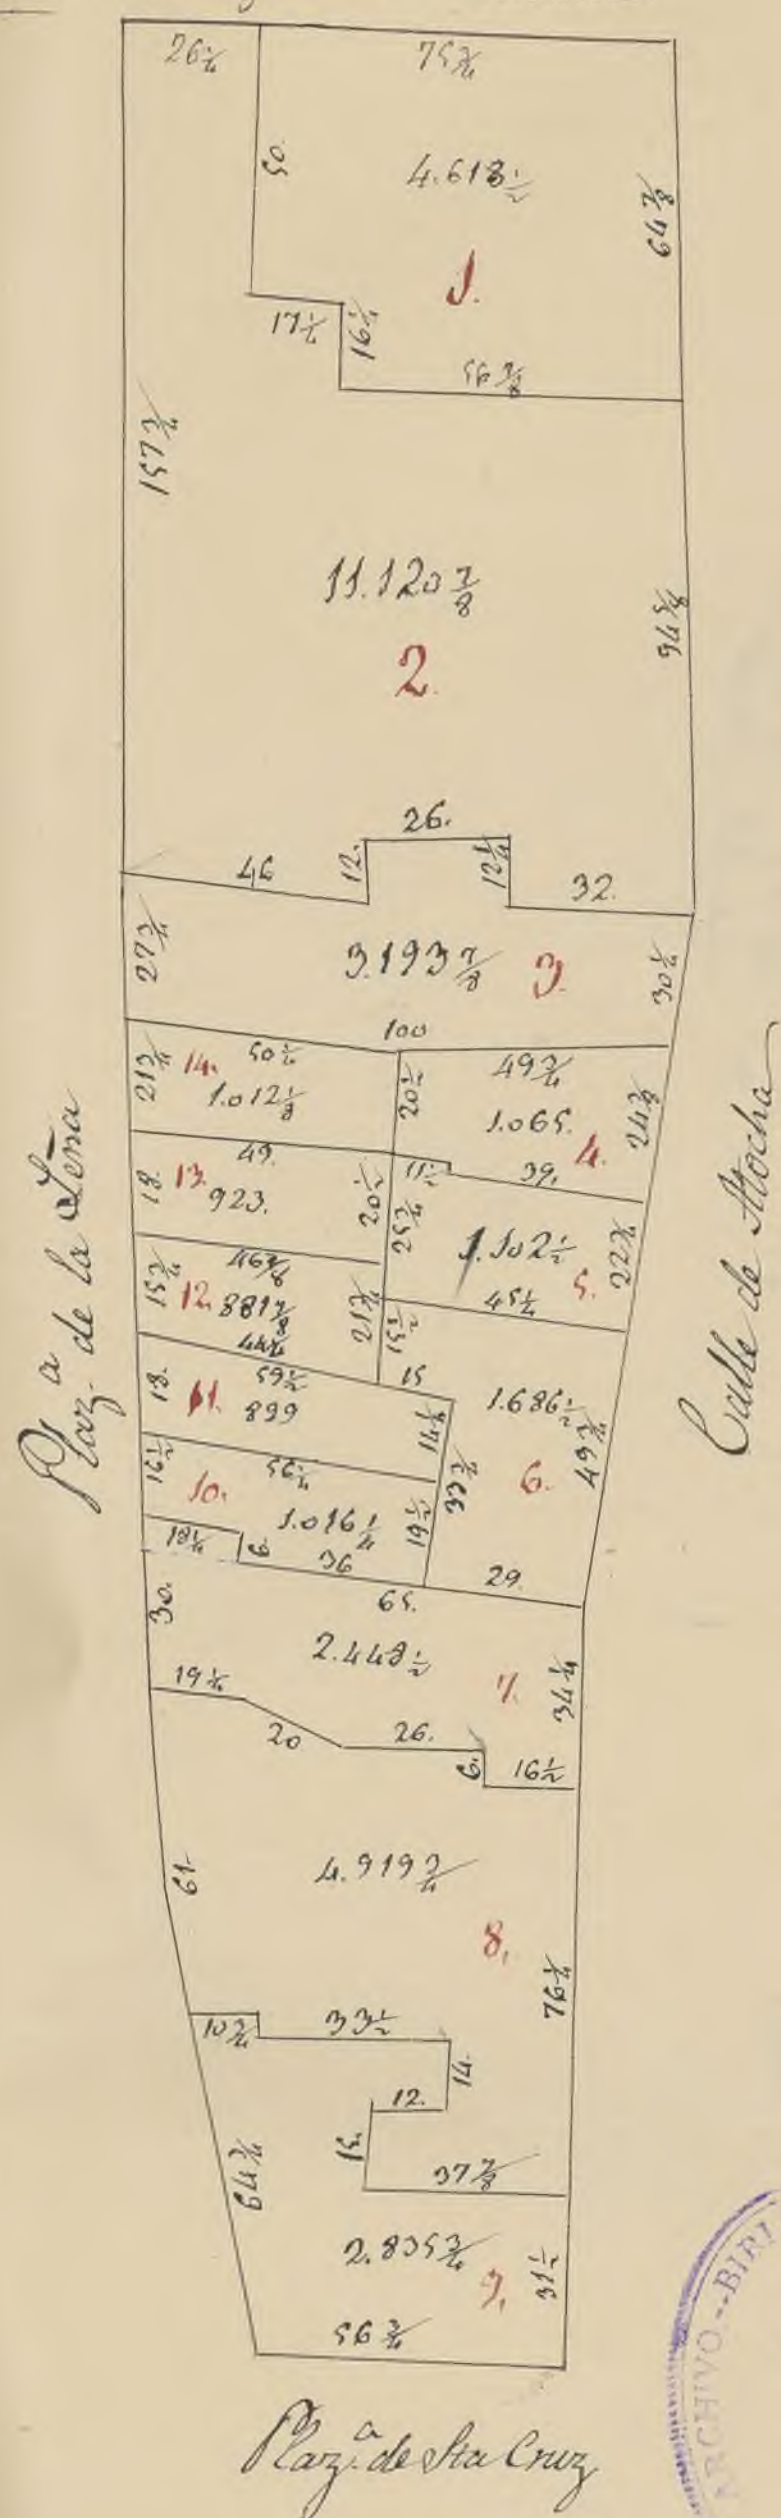 26 1/4
75 3/4
50.
4.618 1/2
64 7/8
1.
17 1/2
16 1/4
157 3/4
11.120 7/8
94 5/8
2.
26.
46
12.
12 1/4
32.
27 3/4
3.193 7/8
3.
30 1/4
100
21 3/4
14.
50 1/2
1.012 1/8
20 1/2
49 3/4
1.065.
24 3/8
4.
49.
11 1/2
39.
18.
13.
923.
20 1/2
25 3/4
1.102 1/2
22 3/4
5.
46 3/8
15 3/4
12.
881 7/8
21 3/4
15 1/2
45 1/4
15
18.
11.
899
1.686 1/2
6.
16 1/2
10.
1.016 1/4
19 1/2
18 1/4
6.
36
29.
65.
30.
2.448 1/2
7.
34 1/4
19 1/4
20
26.
6.
16 1/2
61.
4.919 3/4
8.
76 1/4
10 3/4
33 1/2
14.
12.
15.
37 7/8
64 3/4
2.835 3/4
9.
31 1/2
Plaz.ª de la Leña
Calle de Atocha
Plaz.ª de Sta Cruz
ARCHIVO.--BIRI